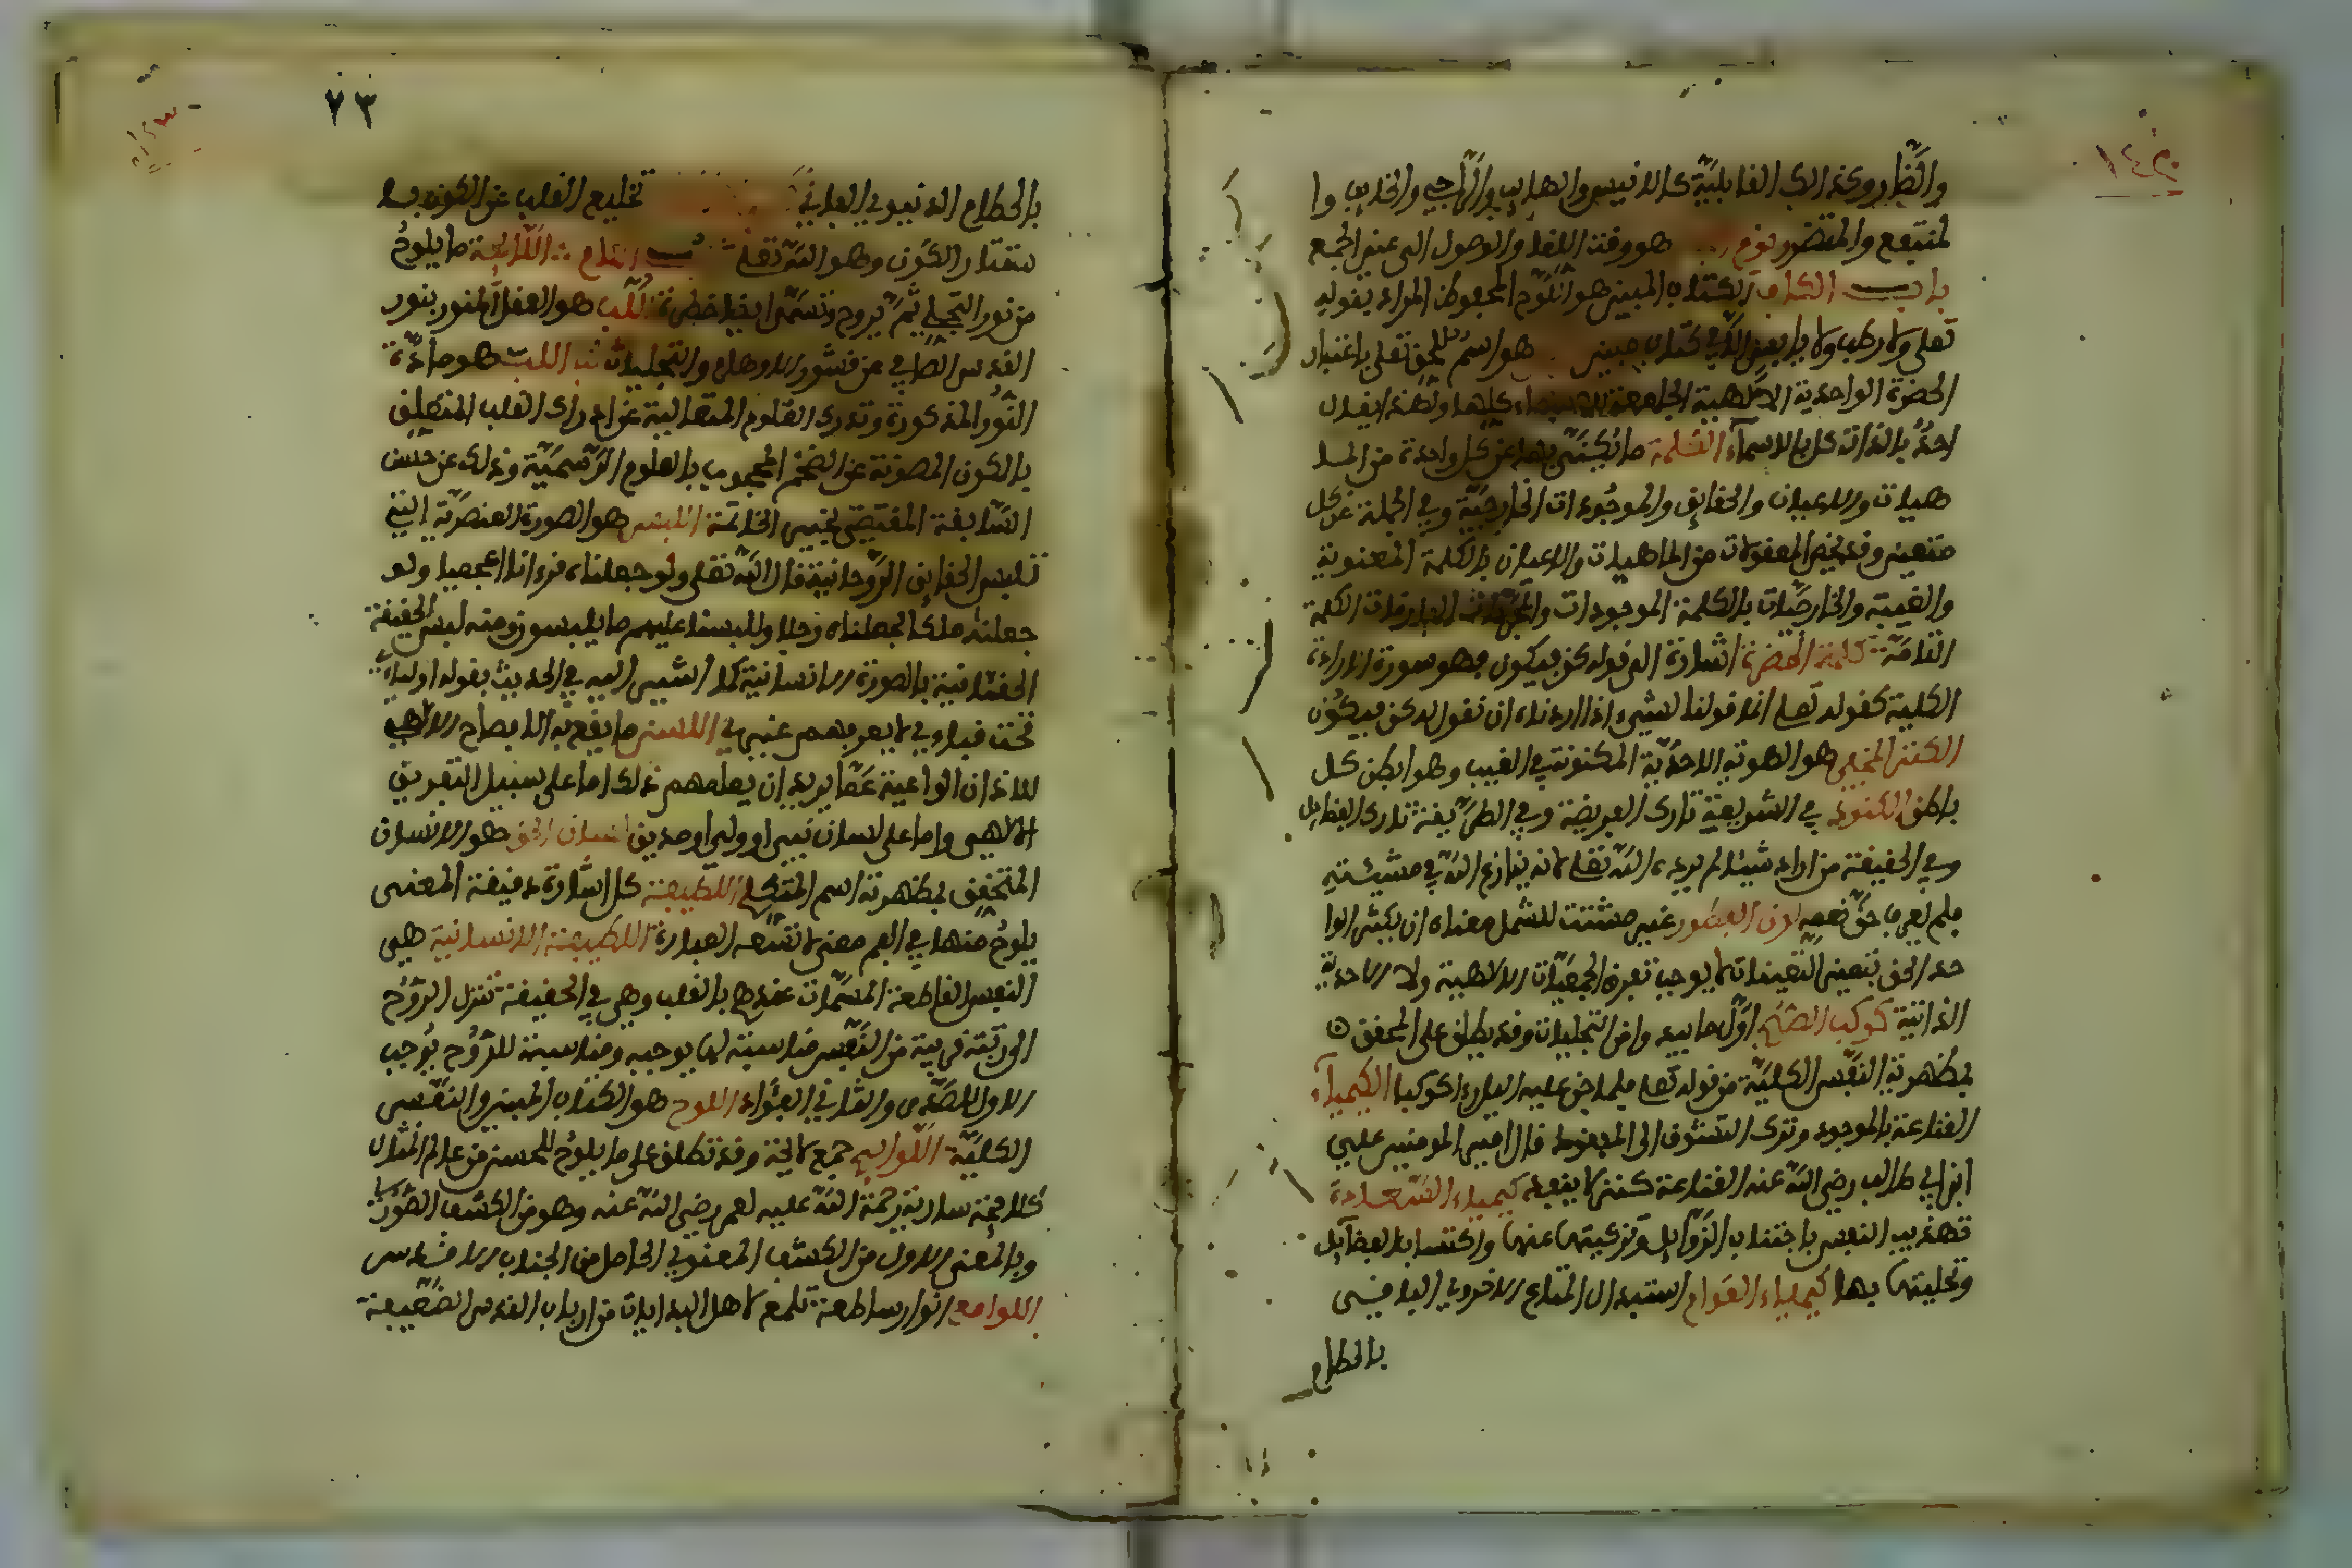 ١٤٣
لمنتفع والمتضرر يوم هو وقت اللقاء والوصول الى عين الجمع
باب الكاف الكتاب المبين هو اللوح المحفوظ المراد بقوله
تعلى ولا رطب ولا يابس الا في كتاب مبين هو اسم للحق تعلى باعتبار
الحضرة الواحدية الالهية الجامعة للاسماء كلها ولهذا يقال
احد بالذات كل بالاسماء الكلمة ما يكنى بها عن كل واحدة من الما
هيات والاعيان والحقايق والموجودات الخارجية وفي الجملة عن كل
متعين وقد يخص المعقولات من الماهيات والاعيان بالكلمة المعنوية
والغيبية والخارجيات بالكلمة الموجودات والمجردات المفارقات الكلمة
التامة كلمة الحضرة اشارة الى قوله كن فيكون فهو صورة الارادة
الكلية كقوله تعلى انما قولنا لشيء اذا اردناه ان نقول له كن فيكون
الكنز المخفي هو الهوية الاحدية المكنونة في الغيب وهو ابطن كل
باطن الكنود في الشريعة تارك الفريضة وفي الطريقة تارك الفضايل
وفي الحقيقة من اراد شيئا لم يرده الله تعلى لانه ينازع الله في مشيئته
فلم يعرف حق نعمه كون الفطور غير مشتت للشمل معناه ان يكثر الوا
حد الحق بتعين التعينات لا يوجب تفرق الجمعيات الالهية ولا الاحدية
الذاتية كوكب الصبح اول ما يبدو من التجليات وقد يطلق على المحقق
بمظهرية النفس الكلية من قوله تعلى فلما جن عليه اليل رءا كوكبا الكيمياء
القناعة بالموجود وترك التشوف الى المفقود قال امير المومنين علي
ابن ابي طالب رضي الله عنه القناعة كنز لا ينفد كيمياء السعادة
تهذيب النفس باجتناب الرذايل وتزكيتها عنها واكتساب الفضايل
وتحليتها بها كيمياء العوام استبدال المتاع الاخروي الباقي
بالحطام
٧٣
بالحطام الدنيوي الفاني تخليع القلب عن الكون با
ستيثار الكون وهو الله تعلى باب اللام اللائحة ما يلوح
من نور التجلي ثم يروح وتسمى ايضا خطرة اللب هو العقل المنور بنور
القدس الصافي عن قشور الاوهام والتخيلات لب اللب هو مادة
النور المذكورة وتدرك العلوم المتعالية عن ادراك القلب المتعلق
بالكون المصونة عن الفهم المحجوب بالعلوم الرسمية وذلك عن حسن
السابقة المقتضي لخير الخاتمة اللبس هو الصورة العنصرية التي
تلبس الحقايق الروحانية قال الله تعلى ولو جعلناه قرءانا اعجميا ولو
جعلناه ملكا لجعلناه رجلا وللبسنا عليهم ما يلبسون ومنه لبس الحقيقة
الحقانية بالصورة الانسانية كما اشير اليه في الحديث بقوله اولياءي
تحت قبابي لا يعرفهم غيري اللسن ما يقع به الايضاح الالهي
للاذان الواعية عما يريد ان يعلمهم ذلك اما على سبيل التعريف
الالهي واما على لسان نبي او ولي او صديق لسان الحق هو الانسان
المتحقق بمظهرية اسم المتكلم اللطيفة كل اشارة دقيقة المعنى
يلوح منها في الفهم معنى لا تسعه العبارة اللطيفة الانسانية هي
النفس الناطقة المسمات عندهم بالقلب وهي في الحقيقة تنزل الروح
الى رتبة قريبة من النفس مناسبة لها بوجه ومناسبة للروح بوجه
الاول الصدر والثاني الفؤاد اللوح هو الكتاب المبين والنفس
الكلية اللوايح جمع لايحة وقد تطلق على ما يلوح للحس من عالم المثال
كلايحة سارية رحمة الله عليه لعمر رضي الله عنه وهو من الكشف الصوري
وبالمعنى الاول من الكشف المعنوي الحاصل من الجناب الاقدس
اللوامع انوار ساطعة تلمع لاهل البدايات من ارباب القدس الضعيفة